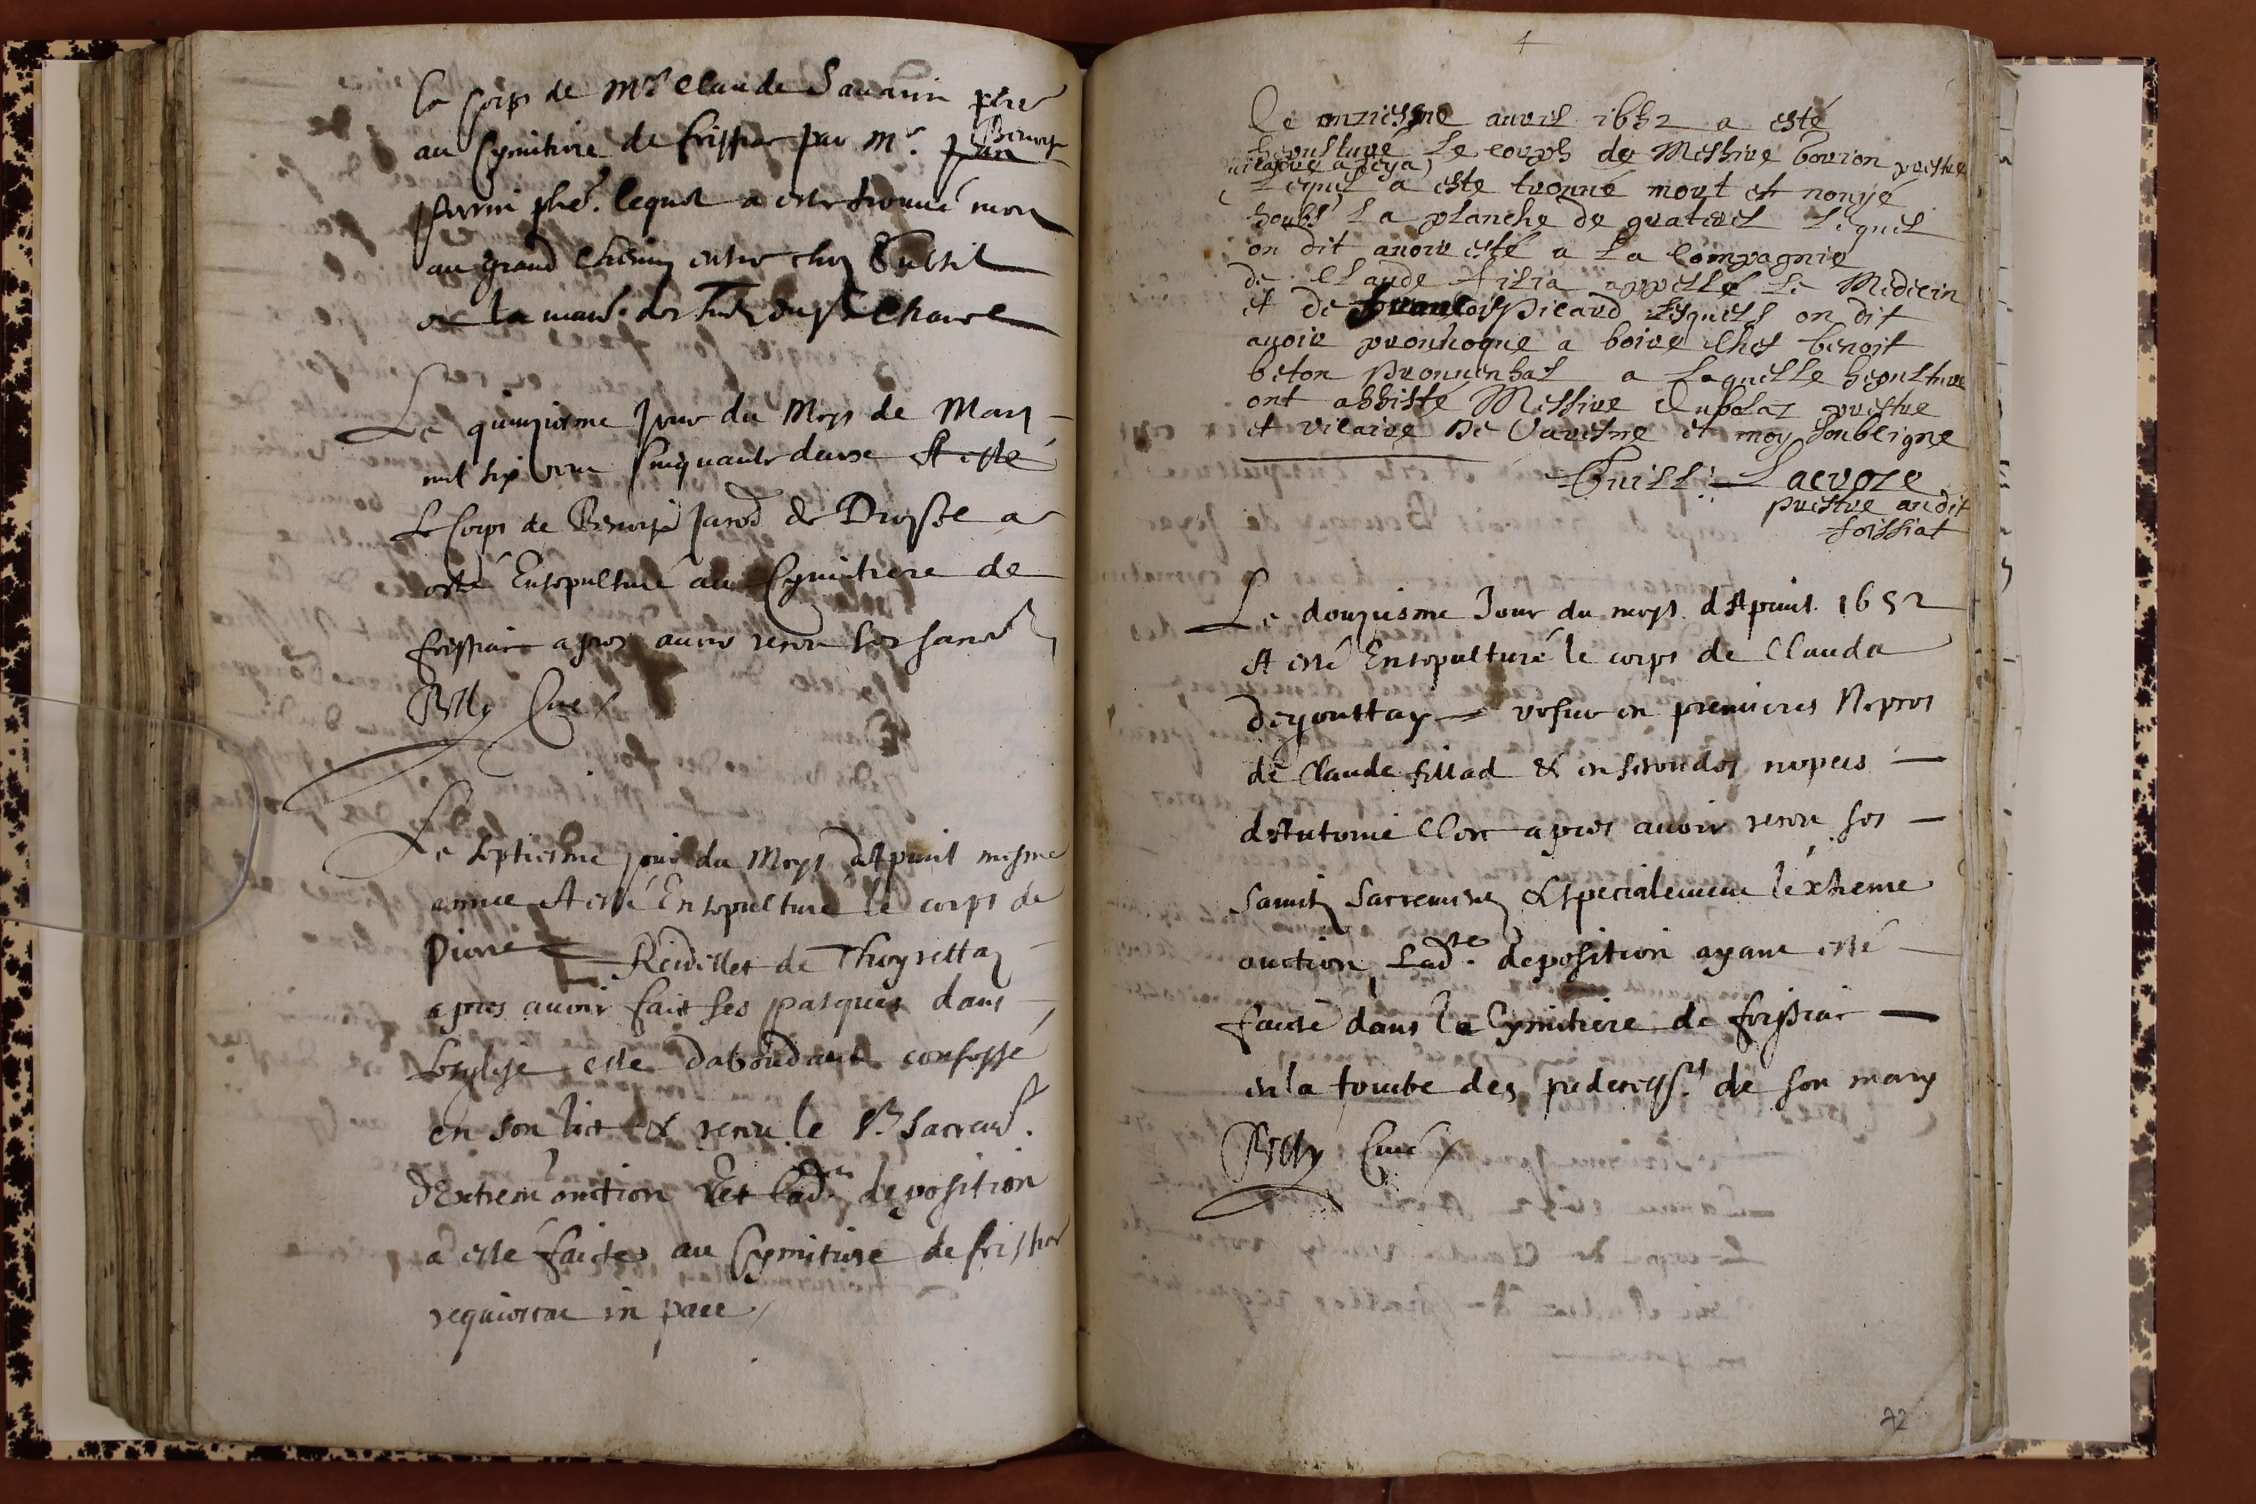 le Corps de Mre Claude Savarin pbre
au Cymitiere de foissia par Mr. Jean Benoist
perrin pbre. lequel a este trouvé mort
au grand Chemin entre chez
et la mais. des Chanel
Le quinziesme Jour du Moys de Mars
mil six cent Cinquante deux A esté
Le Corps de Benoist Jarod de Dingste a
esté Ensepulturé au Cymitiere de
foissiat apres avoir receu ses sancts
Billy Curé
Le septiesme jour du Moys d'Apvril mesme
annee A esté Ensepulturé le corps de
Pierre Reivillet de Thoyrettaz
apres avoir fait ses pasques dans
Leglise este dabondant confessé
en son lict & receu le St. Sacremt.
d'Extrem onction Et lade. deposition
a esté faictes au Cymitiere de foissia
requiescat in pace
Le onziesme avril 1652 a esté
sepulturé Le corps de Messire bovion prestre
vicaire a Jeya
Lequel a este trouvé mort et noyé
soubs La planche de gratevel Lequel
on dit avoir esté a La Compagnie
de Claude filia appellé Le Medecin
et de francoys Picard Lesquels on dit
avoir pronhoque a boire Ches benoit
beton Prouvenhal a Laquelle sepulture
ont assisté Messire Dubolaz prestre
et vicaire De Varesne et moy soubsigne
Guill: Lacroze
prestre audit
foissiat
Le douziesme Jour du moys d'Apvril 1652
A esté Ensepulturé le corps de Clauda
deyouttay vefve en premieres Nopces
de Claude fillad & en secondes nopces
d'Antoine Clerc apres avoir receu ses
saincts sacrements & specialement l'extreme
onction Lade. deposition ayant esté
faicte dans le Cymitiere de foissiat
en la tombe des predecess.rs de son mary
Billy Curé
72